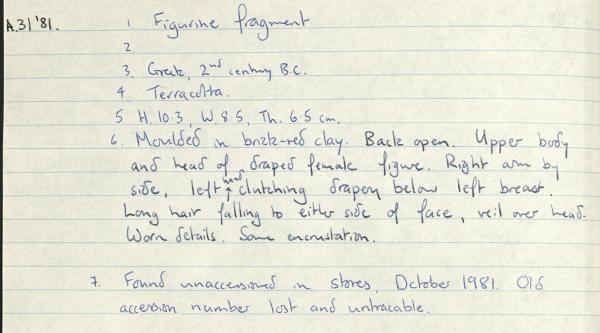 A.31'81.
1. Figurine fragment
2.
3. Greek, 2nd century B.C.
4 Terracotta.
5 H. 10.3, W. 8.5, Th. 6.5 cm.
6. Moulded in brick-red clay. Back open. Upper body
and head of draped female figure. Right arm by
side, left hand clutching drapery below left breast.
Long hair falling to either side of face, veil over head.
Worn details. Some encrustation.
7. Found unaccessioned in stores, October 1981. Old
accession number lost and untracable.